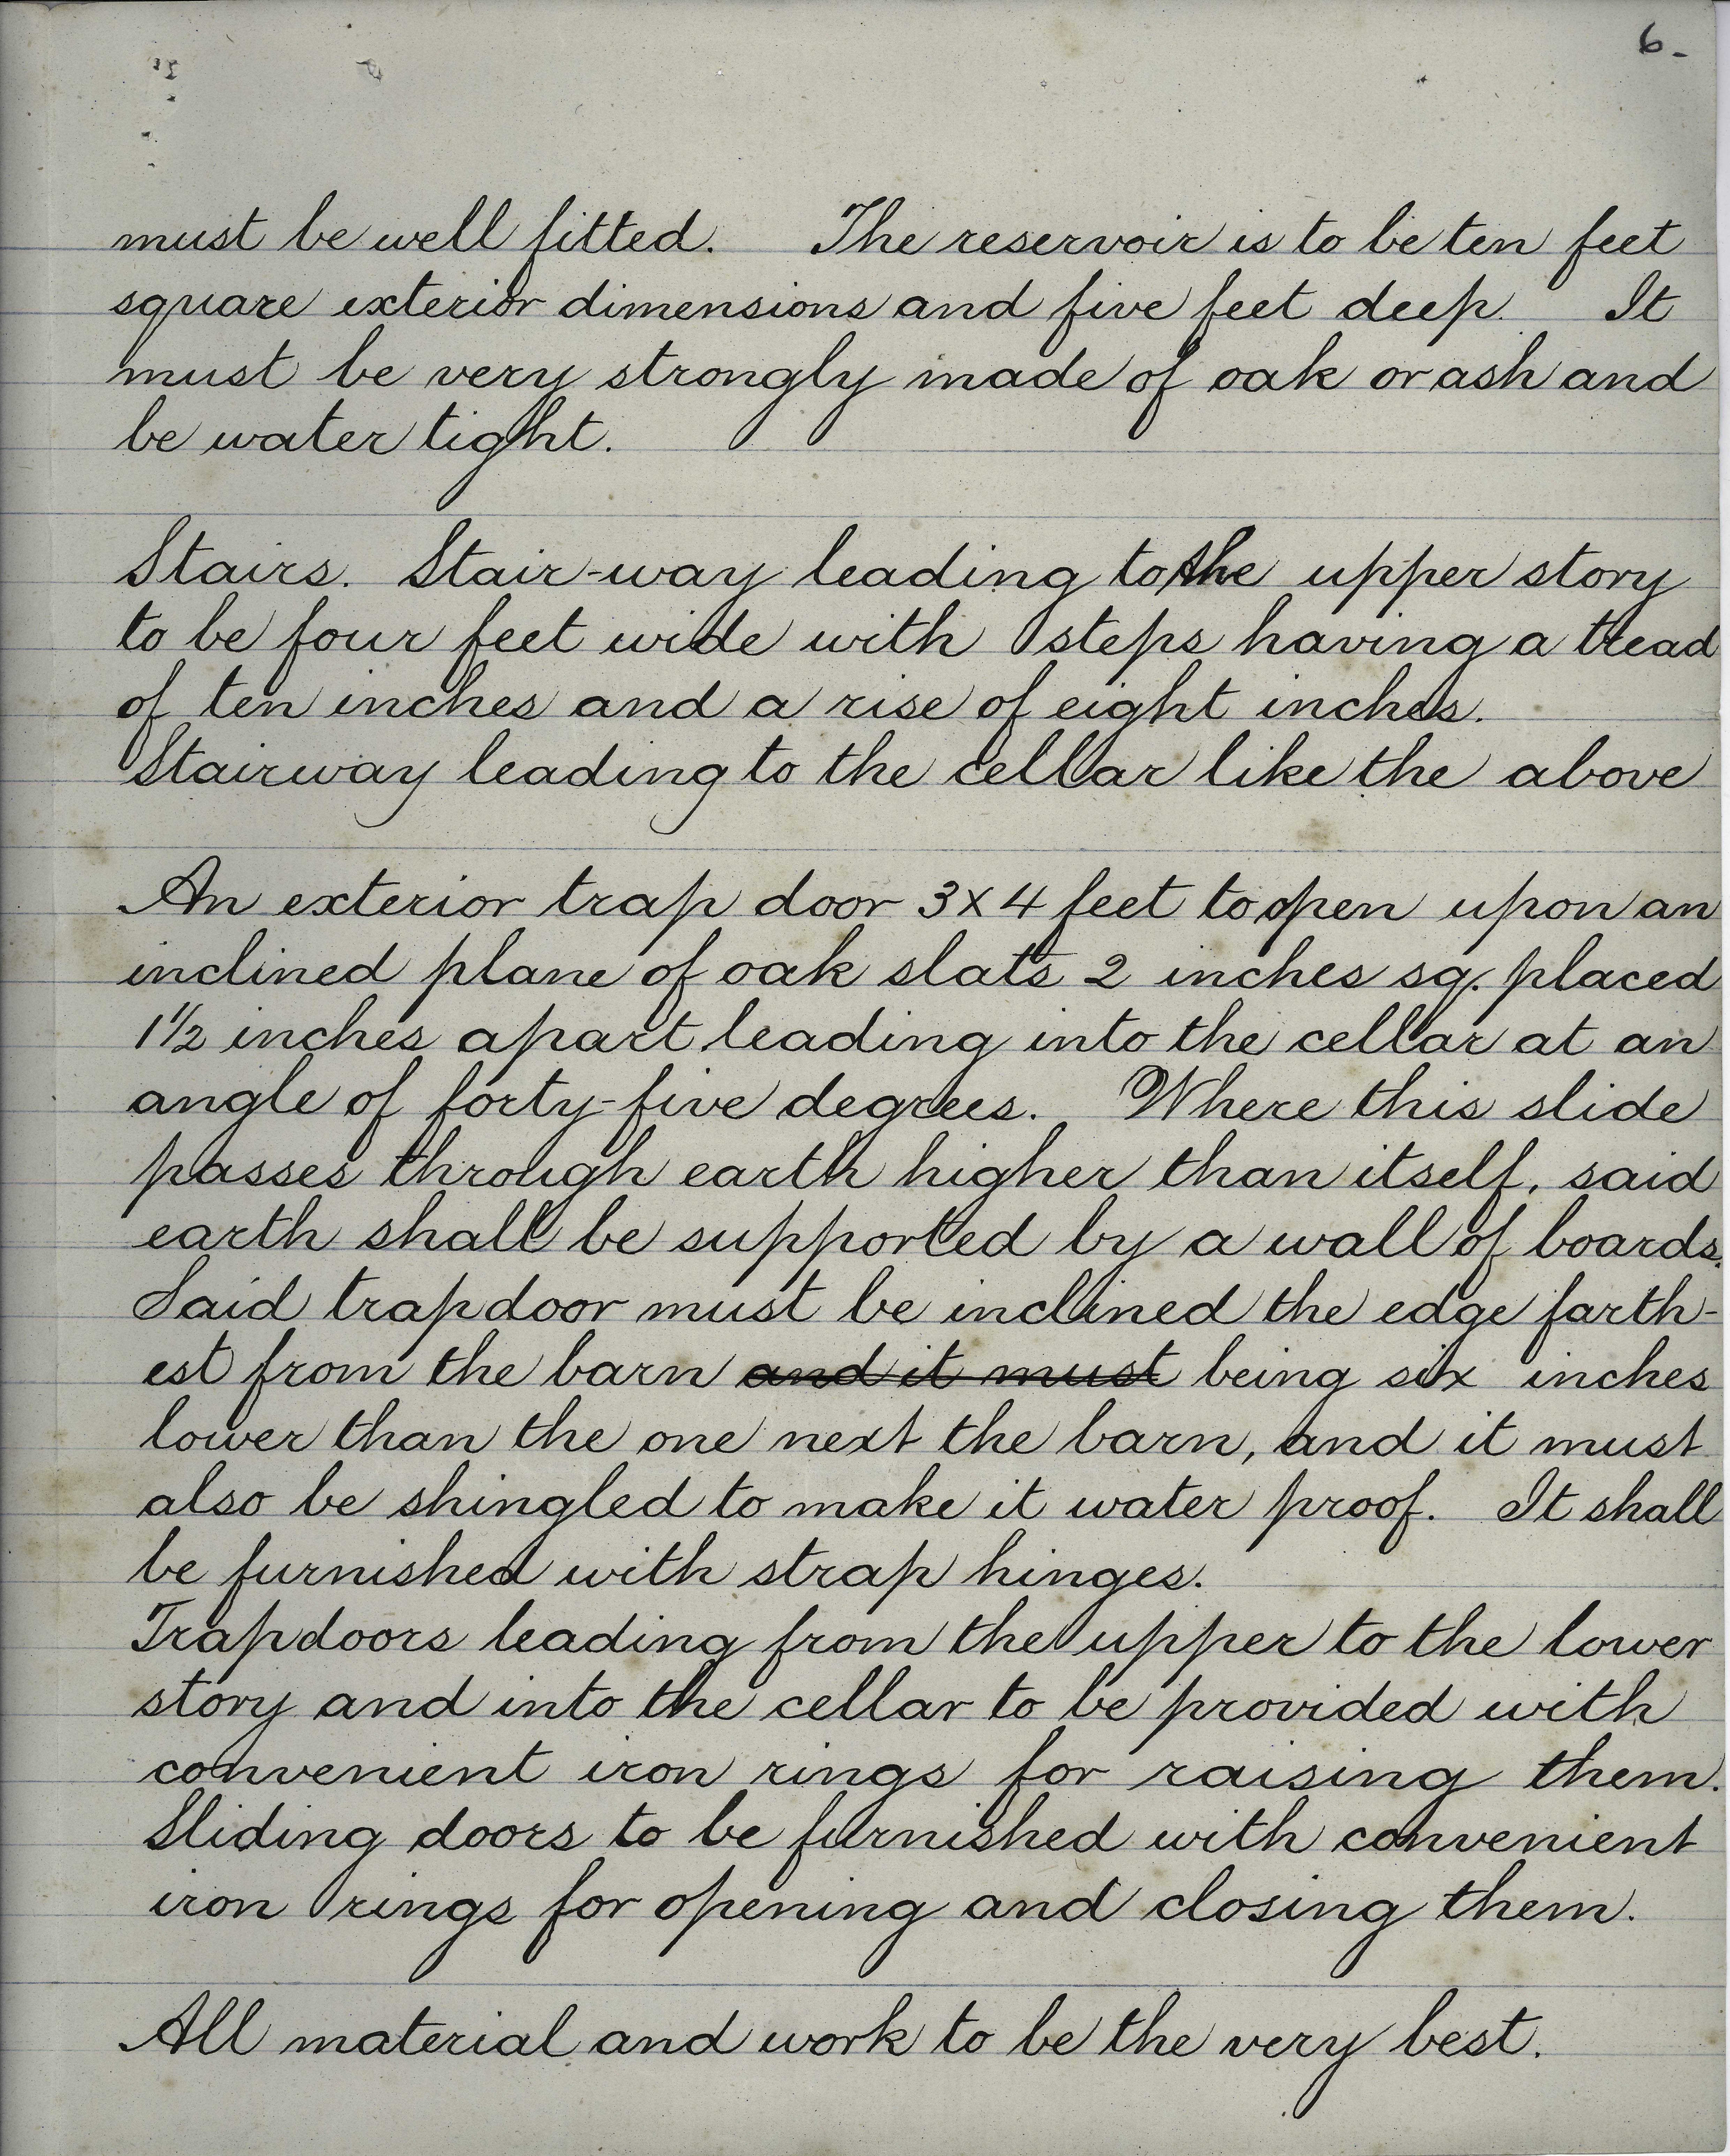 6-
must be well fitted. The reservoir is to be ten feet
square exterior dimensions and five feet deep. It
must be very strongly made of oak or ash and
be water tight.
Stairs. Stair-way leading to the upper story
to be four feet wide with steps having a tread
of ten inches and a rise of eight inches.
Stairway leading to the cellar like the above
An exterior trap door 3x4 feet to open upon an
inclined plane of oak slats 2 inches sq. placed
1½ inches apart leading into the cellar at an
angle of forty-five degrees. Where this slide
passes through earth higher than itself, said
earth shall be supported by a wall of boards.
Said trapdoor must be inclined the edge farth-
est from the barn and it must being six inches
lower than the one next the barn, and it must
also be shingled to make it water proof. It shall
be furnished with strap hinges.
Trapdoors leading from the upper to the lower
story and into the cellar to be provided with
convenient iron rings for raising them.
Sliding doors to be furnished with convenient
iron rings for opening and closing them.
All material and work to be the very best.